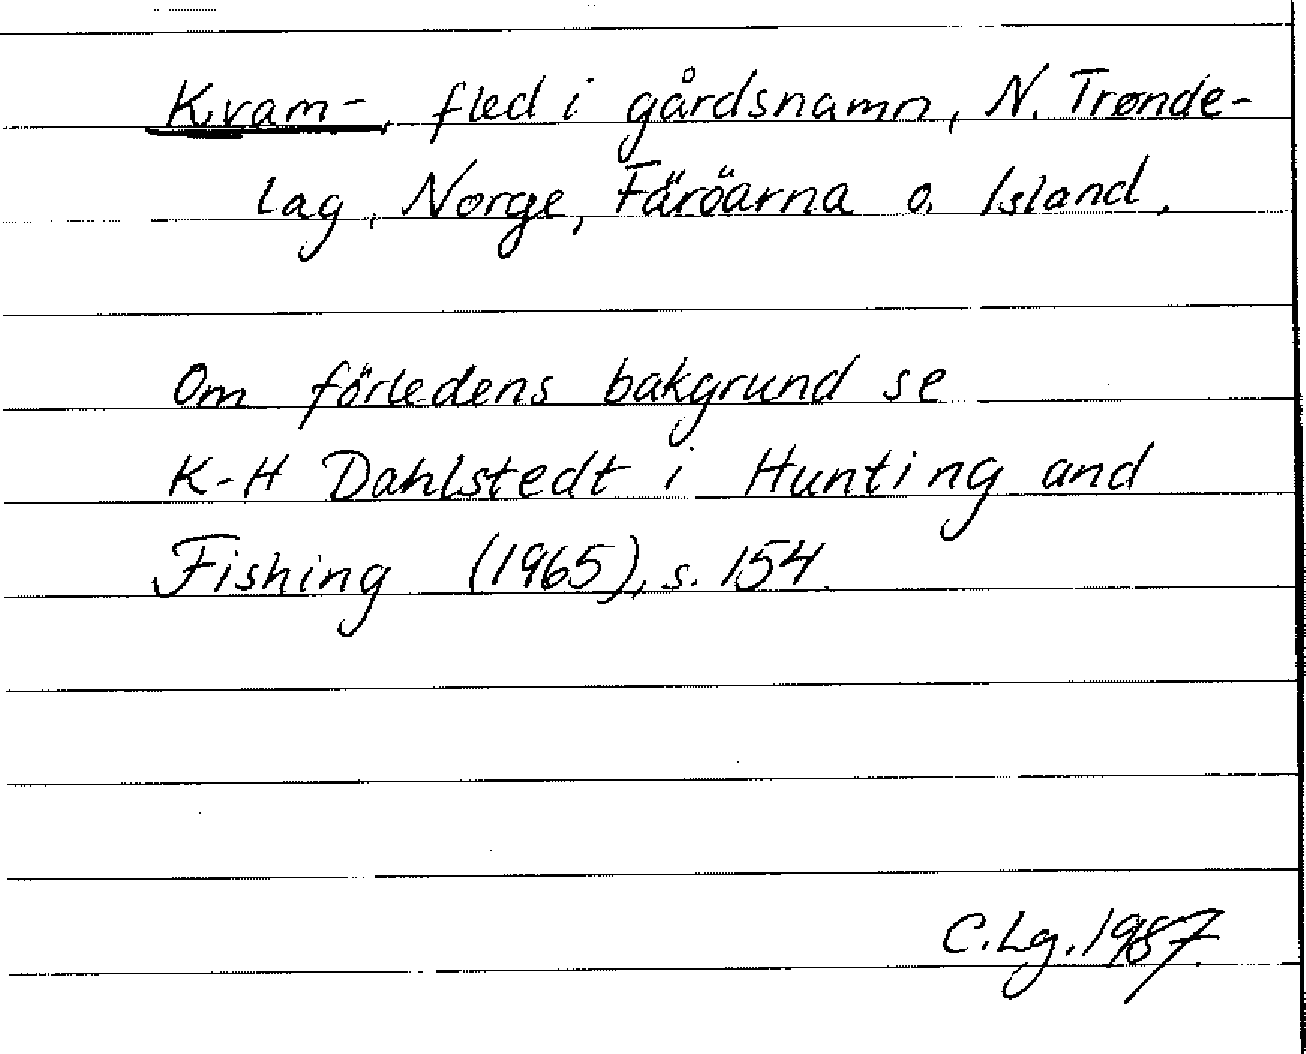 Kvam-, fled i gårdsnamn, N. Trønde-
lag, Norge, Färöarna o. Island.
Om förledens bakgrund se
K-H Dahlstedt i Hunting and
Fishing (1965), s. 154.
C.Lg. 1987.